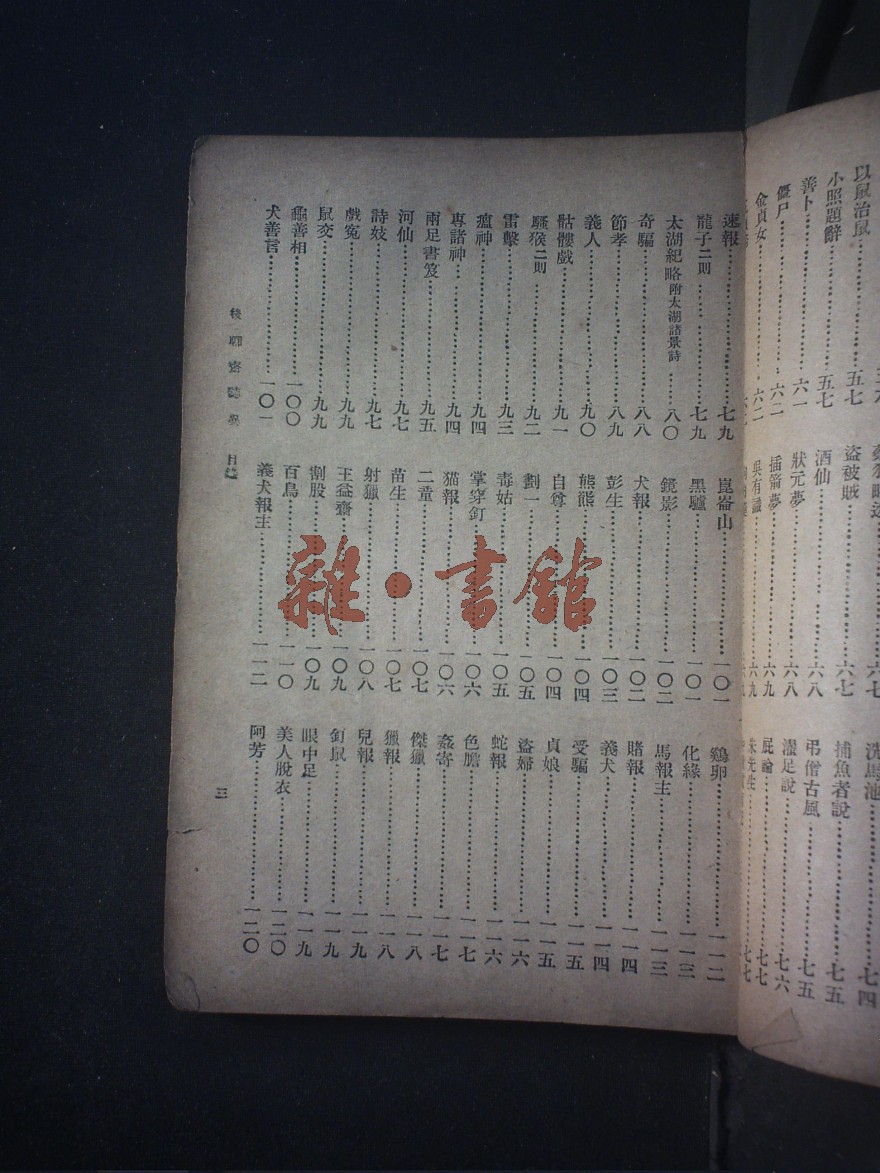 以鼠治鼠
小照題辭……五七
善卜……六一
僵尸……六二
金貞女……六二
盜被賊……六七
酒仙……六八
狀元夢……六八
插箭夢……六九
吳有讖……六九
洗馬池……七四
捕魚者說……七五
弔僧古風……七五
濯足說……七六
屁論……七七
朱先生……七七
速報……七九
龍子二則……七九
太湖紀略附太湖諸景詩……八〇
奇騙……八八
節孝……八九
義人……九〇
骷髏戲……九一
騷猴二則……九二
雷擊……九三
瘟神……九四
專諸神……九四
兩足書笈……九五
河仙……九七
詩妓……九七
戲冤……九九
鼠交……九九
龜善相……一〇〇
犬善言……一〇一
崑崙山……一〇一
黑驢……一〇一
鏡影……一〇二
犬報……一〇二
彭生……一〇三
熊熊……一〇四
自尊……一〇四
劃一……一〇五
毒姑……一〇五
掌穿釘……一〇六
猫報……一〇六
二童……一〇七
苗生……一〇七
射獵……一〇八
王益齋……一〇九
割股……一〇九
百鳥……一一〇
義犬報主……一一二
鷄卵……一一二
化緣……一一三
馬報主……一一三
賭報……一一四
義犬……一一四
受騙……一一五
貞娘……一一五
盜婦……一一六
蛇報……一一六
色膽……一一七
姦寄……一一七
傑獵……一一八
獵報……一一八
兒報……一一九
釘鼠……一一九
眼中足……一一九
美人脫衣……一二〇
阿芳……一二〇
後聊齋誌異 目錄
三
雜·書館